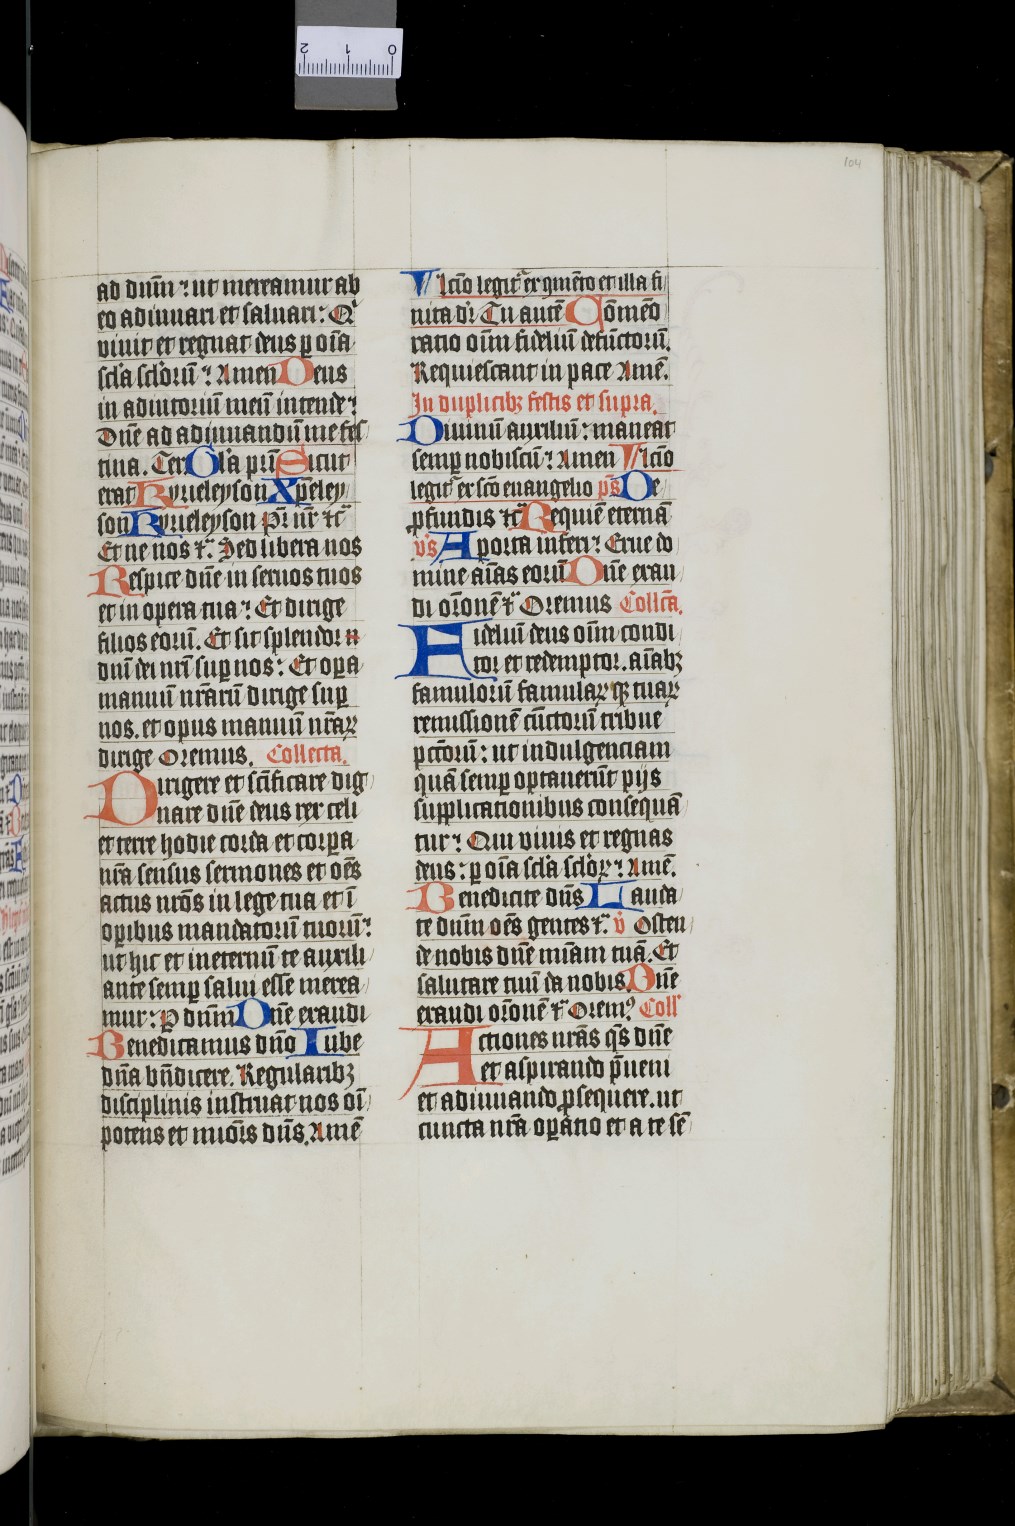 104
ad dnm̄ ⁊ ut mereamur ab
eo adiuuari et saluari: Q̄
viuit et regnat deus p̱ oīa
scl̄a scl̄oꝝ ⁊ Amen Deus
in adiutoriū meū intende ⁊
Dn̄e ad adiuuandū me fes
tina. Ter Gl̄a pr̄i Sicut
erat Kyrieleyson Xpēley
son Kyrieleyson Pr̄ nr̄ ⁊c̄
Et ne nos ⁊c̄ Sed libera nos
Respice dn̄e in seruos tuos
et in opera tua ⁊ Et dirige
filios eorū. Et sit splendor
dn̄i dei nr̄i sup̱ nos: Et op̱a
manuū nr̄arū dirige sup̱
nos. et opus manuū nr̄aꝝ
dirige Oremus. Collecta.
Dirigere et sc̄ificare dig
nare dn̄e deus rex celi
et terre hodie corda et corp̱a
nr̄a sensus sermones et oēs
actus nr̄os in lege tua et ī
op̱ibus mandatorū tuorū ⁊
ut hic et in eternū te auxili
ante semp̱ salui esse merea
mur ⁊ P̱ dn̄m Dn̄e exaudi
Benedicamus dn̄o Iube
dn̄a bn̄dicere. Regularibꝫ
disciplinis instruat nos oī
potens et mīors dn̄s. Amē
Vlc̄io legit̄ ex qmēto et illa fi
nita dr̄: Tu autē Cōmēo
ratio oīm fidelīu defūctorū.
Requiescant in pace Amē.
In duplicibꝫ festis et supra.
Diuinū auxiliū: maneat
semp̱ nobiscū ⁊ Amen Vlc̄io
legit̄ ex sc̄o euangelio ps̄ De
ꝓfundis ⁊c̄ Requiē eternā
v̄s A porta inferi ⁊ Erue do
mine aīas eorū Dn̄e exau
di or̄onē ⁊c̄ Oremus Collc̄a.
Fideliū deus oīm condi
tor et redemptor. aīabꝫ
famulorū famulaꝝ qꝫ tuaꝝ
remissionē cūctorū tribue
pc̄torū: ut indulgenciam
quā semp̱ optauerūt pijs
supplicationibus consequā
tur ⁊ Qui viuis et regnas
deus: p̱ oīa scl̄a scl̄oꝝ ⁊ Amē.
Benedicite dn̄s Lauda
te dn̄m oēs gentes ⁊c̄. v̄ Osten
de nobis dn̄e mīam tuā. Et
salutare tuū da nobis Dn̄e
exaudi or̄onē ⁊c̄ Oremꝰ Coll̄
Actiones nr̄as qs̄ dn̄e
et aspirando p̄ueni
et adiuuando ꝓsequere. ut
cuncta nr̄a op̱atio et a te sē